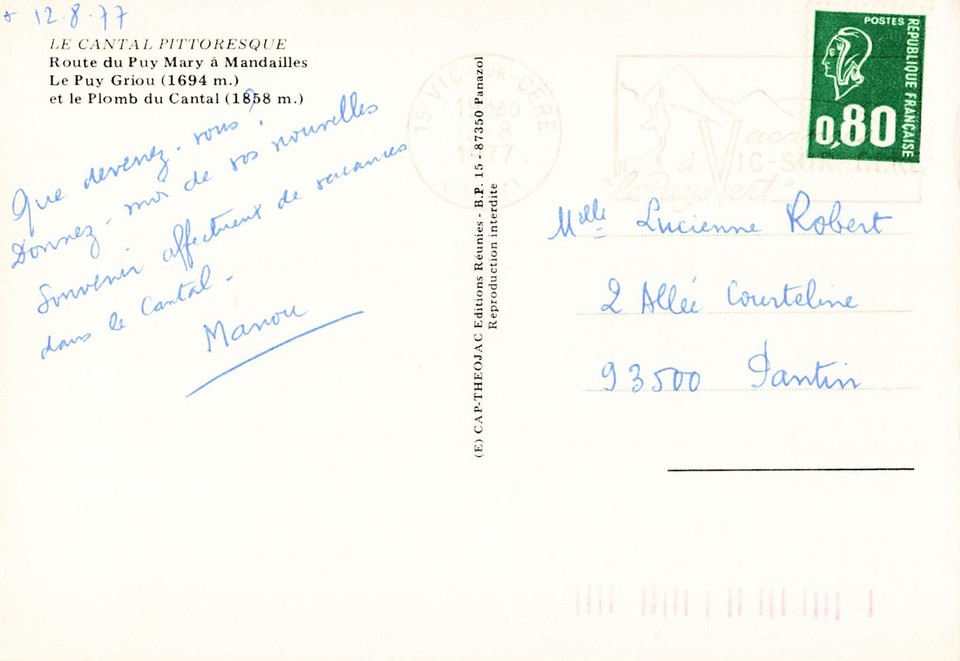 + 12.8.77
LE CANTAL PITTORESQUE
Route du Puy Mary à Mandailles
Le Puy Griou (1694 m.)
et le Plomb du Cantal (1858 m.)
Que devenez-vous?
Donnez-moi de vos nouvelles
Souvenir affectueux de vacances
dans le Cantal-
Manou
(E) CAP-THEOJAC Editions Réunies - B.P. 15 - 87350 Panazol
Reproduction interdite
15 VIC-SUR-CERE
1977
Vacances
à VIC-SUR-CERE
"le Pays Vert"
POSTES
RÉPUBLIQUE FRANÇAISE
0,80
Melle Lucienne Robert
2 Allée Courteline
93500 Pantin